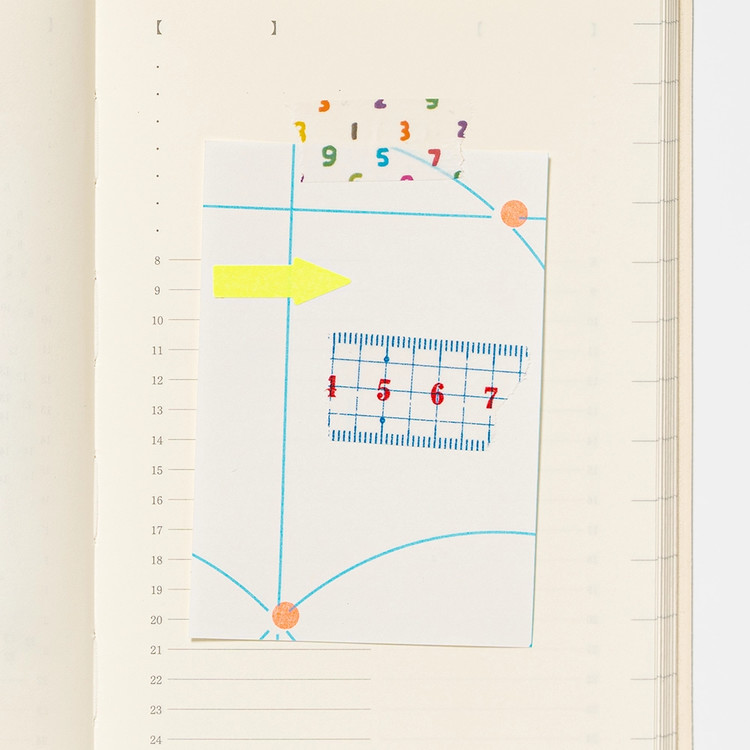 【 】
1 3
9 5 7
8
9
10
11
12
5 6 7
13
14
15
16
17
18
19
20
21
22
23
24